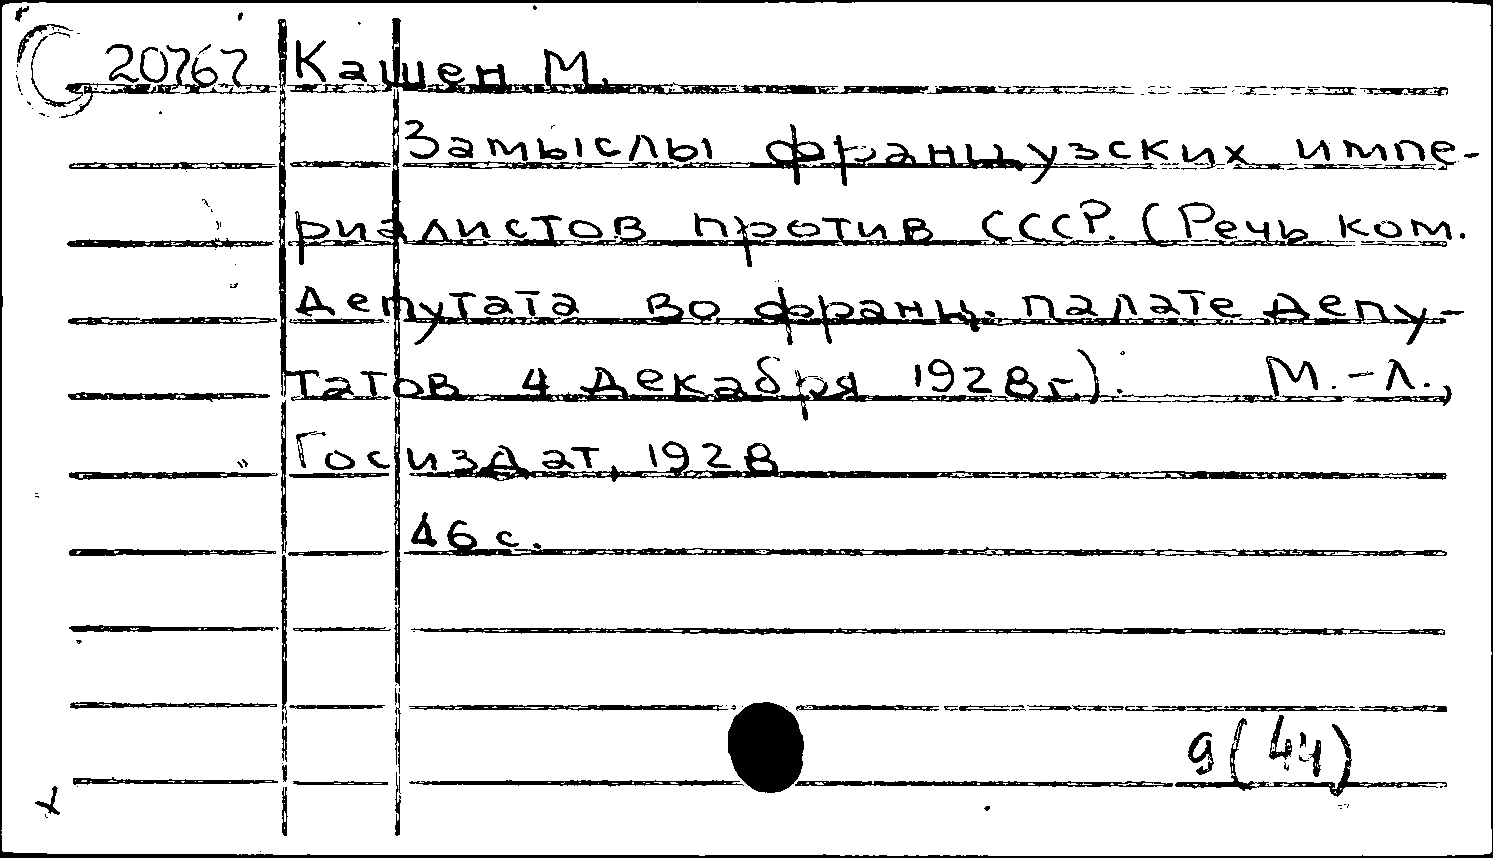 20767 Кашен М.
Замыслы французских импе-
риалистов против СССР. (Речь ком.
депутата во франц. палате депу-
татов 4 декабря 1928 г.). М.-Л.,
Госиздат, 1928
46 с.
9(44)